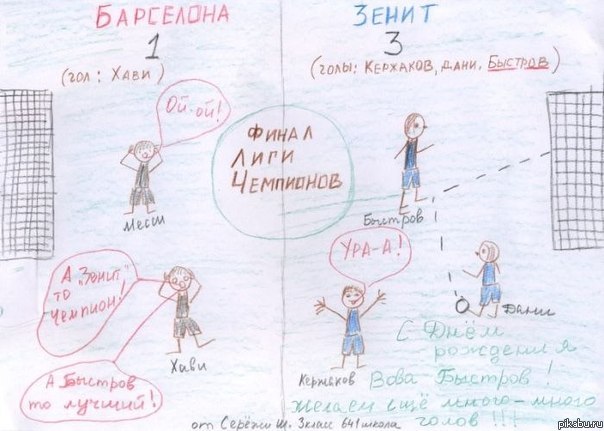 БАРСЕЛОНА
1
(ГОЛ: ХАВИ)
ЗЕНИТ
3
(ГОЛЫ: КЕРЖАКОВ, ДАНИ, БЫСТРОВ)
ОЙ-ОЙ!
ФИНАЛ
ЛИГИ
ЧЕМПИОНОВ
Месси
Быстров
УРА-А!
А „Зенит"
то
Чемпион!
Дани
Хави
Кержаков
А Быстров
то лучший!
С Днём
рождения
Вова Быстров!
Желаем ещё много-много
голов!!!
от Серёжи Ш. 3класс 641школа
pikabu.ru